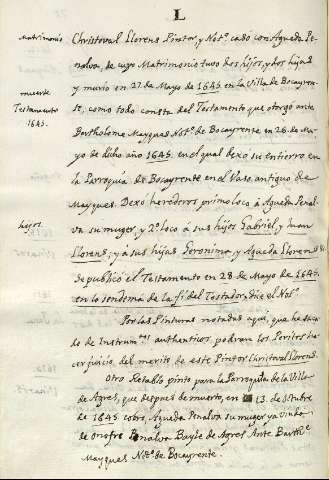 L
matrimonio
Christoval Llorens Pintor, y Not.º casó con Agueda Pe-
nalva, de cuyo Matrimonio tuvo dos hijos, y dos hijas
muerte
y murio en 27 de Mayo de 1645. en la Villa de Bocayren-
Testamento
te, como todo consta del Testamento que otorgó ante
1645.
Bartholome Mayques Not.º de Bocayrente en 26 de Ma-
yo de dicho año 1645. en el qual dexo su entierro en
la Parroquia de Bocayrente en el Vaso antiguo de
Mayques. Dexó herederos primo loco á Agueda Penal-
hijos
va su muger, y 2.º loco á sus hijos Gabriel, y Juan
Llorens; y á sus hijas Geronima, y Agueda Llorens
se publicó el Testamento en 28 de Mayo de 1645.
en lo sendemá de la fi del Testador, dice el Not.º
Por las Pinturas notadas aqui, que he saca-
do de Instrum.tos authenticos, podran los Peritos ha-
cer juicio del merito de este Pintor Christoval Llorens.
Otro Retablo pinto para la Parroquia de la Villa
de Agres, que despues de muerto, en 13. de Octubre
de 1645 cobró Agueda Penalva su muger, ya viuda
de Onofre Penalva Bayle de Agres Ante Barth.e
Mayques Not.º de Bocayrente.